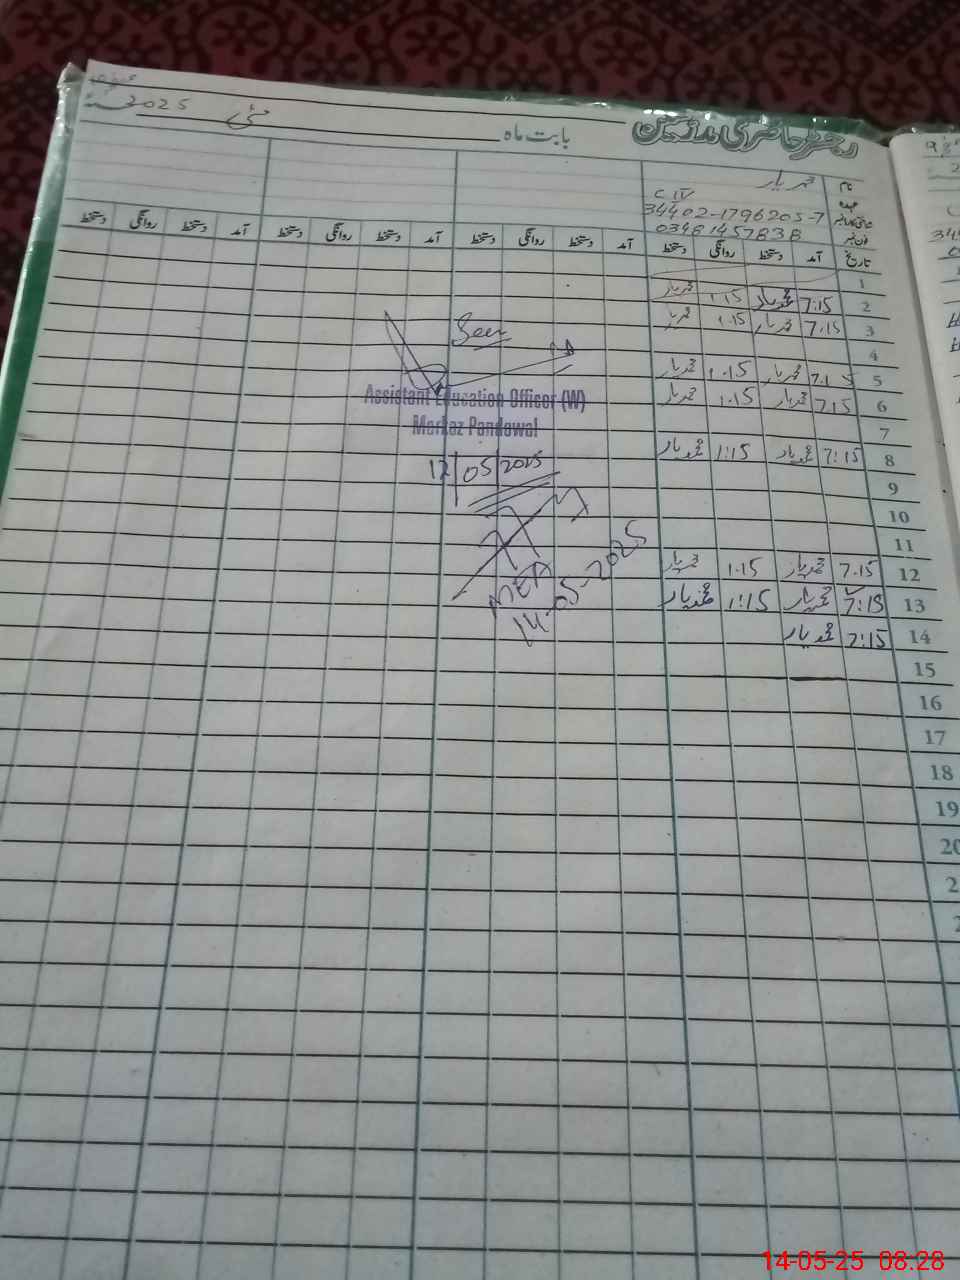 رجسٹر حاضری مدرسین بابت ماہ مئی 2025
نام محمد یار
عہدہ C IV
شناختی کارڈ نمبر 34402-1796205-7
فون نمبر 03481457838
تاریخ آمد دستخط روانگی دستخط آمد دستخط روانگی دستخط آمد دستخط روانگی دستخط
1
2 7:15 محمد یار 1.15 محمد یار
3 7.15 محمد یار 1.15 محمد یار
4
5 7.15 محمد یار 1.15 محمد یار
6 7.15 محمد یار 1.15 محمد یار
7
8 7:15 محمد یار 1:15 محمد یار
9
10
11
12 7.15 محمد یار 1.15 محمد یار
13 7:15 محمد یار 1:15 محمد یار
14 7:15 محمد یار
15
16
17
18
19
20
Seen
Assistant Education Officer (W)
Merkaz Pandowal
12/05/2025
MEA
14-05-2025
14-05-25 08.28